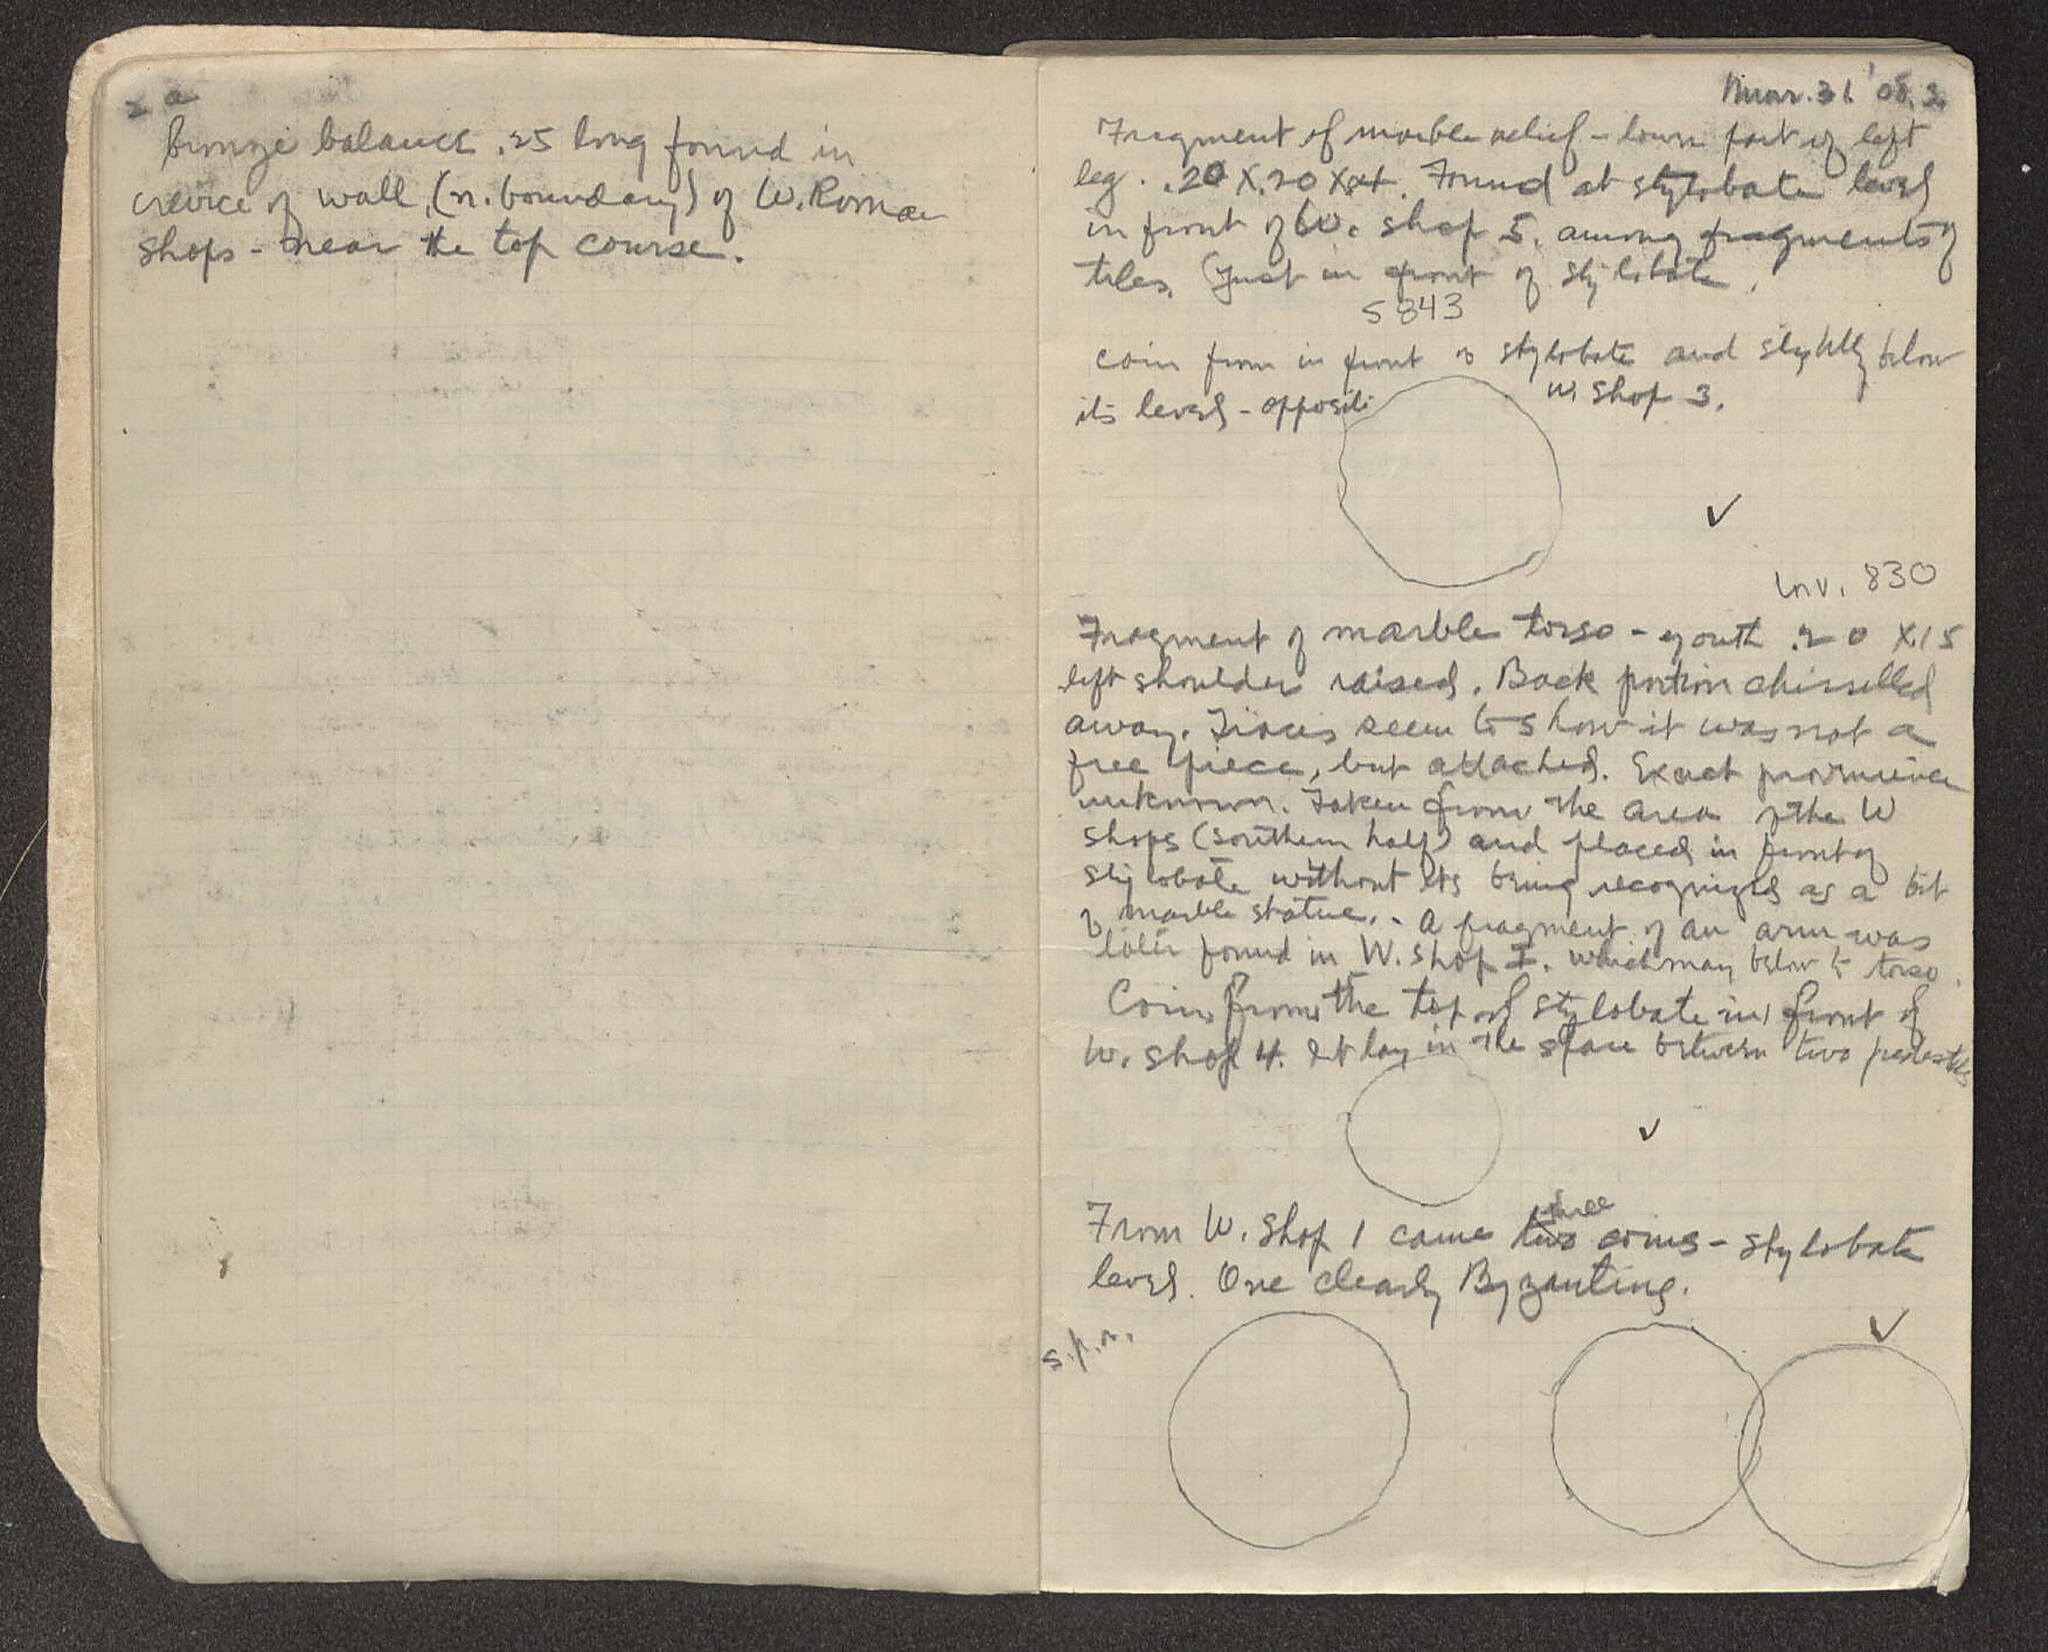 2 a
bronze balance .25 long found in
crevice of wall, (n. boundary) of W. Roman
shops - near the top course.
Mar. 31 '08. 3.
Fragment of marble relief - lower part of left
leg. .20 X .20 X Found at stylobate level
in front of W. shop 5, among fragments of
tiles. (Just in front of stylobate.
5843
coin from in front of stylobate and slightly below
its level - opposite W. Shop 3.
✓
Inv. 830
Fragment of marble torso - youth .20 X .15
left shoulder raised. Back portion chiselled
away. Traces seem to show it was not a
free piece, but attached. Exact provenience
unknown. Taken from the area of the W
shops (southern half) and placed in front of
stylobate without its being recognized as a bit
of marble statue. - A fragment of an arm was
later found in W. shop I. which may belong to torso.
Coin from the top of stylobate in front of
W. shop 4. It lay in the space between two pedestals
✓
From W. Shop 1 came two three coins - stylobate
level. One clearly Byzantine.
✓
s.p.n.